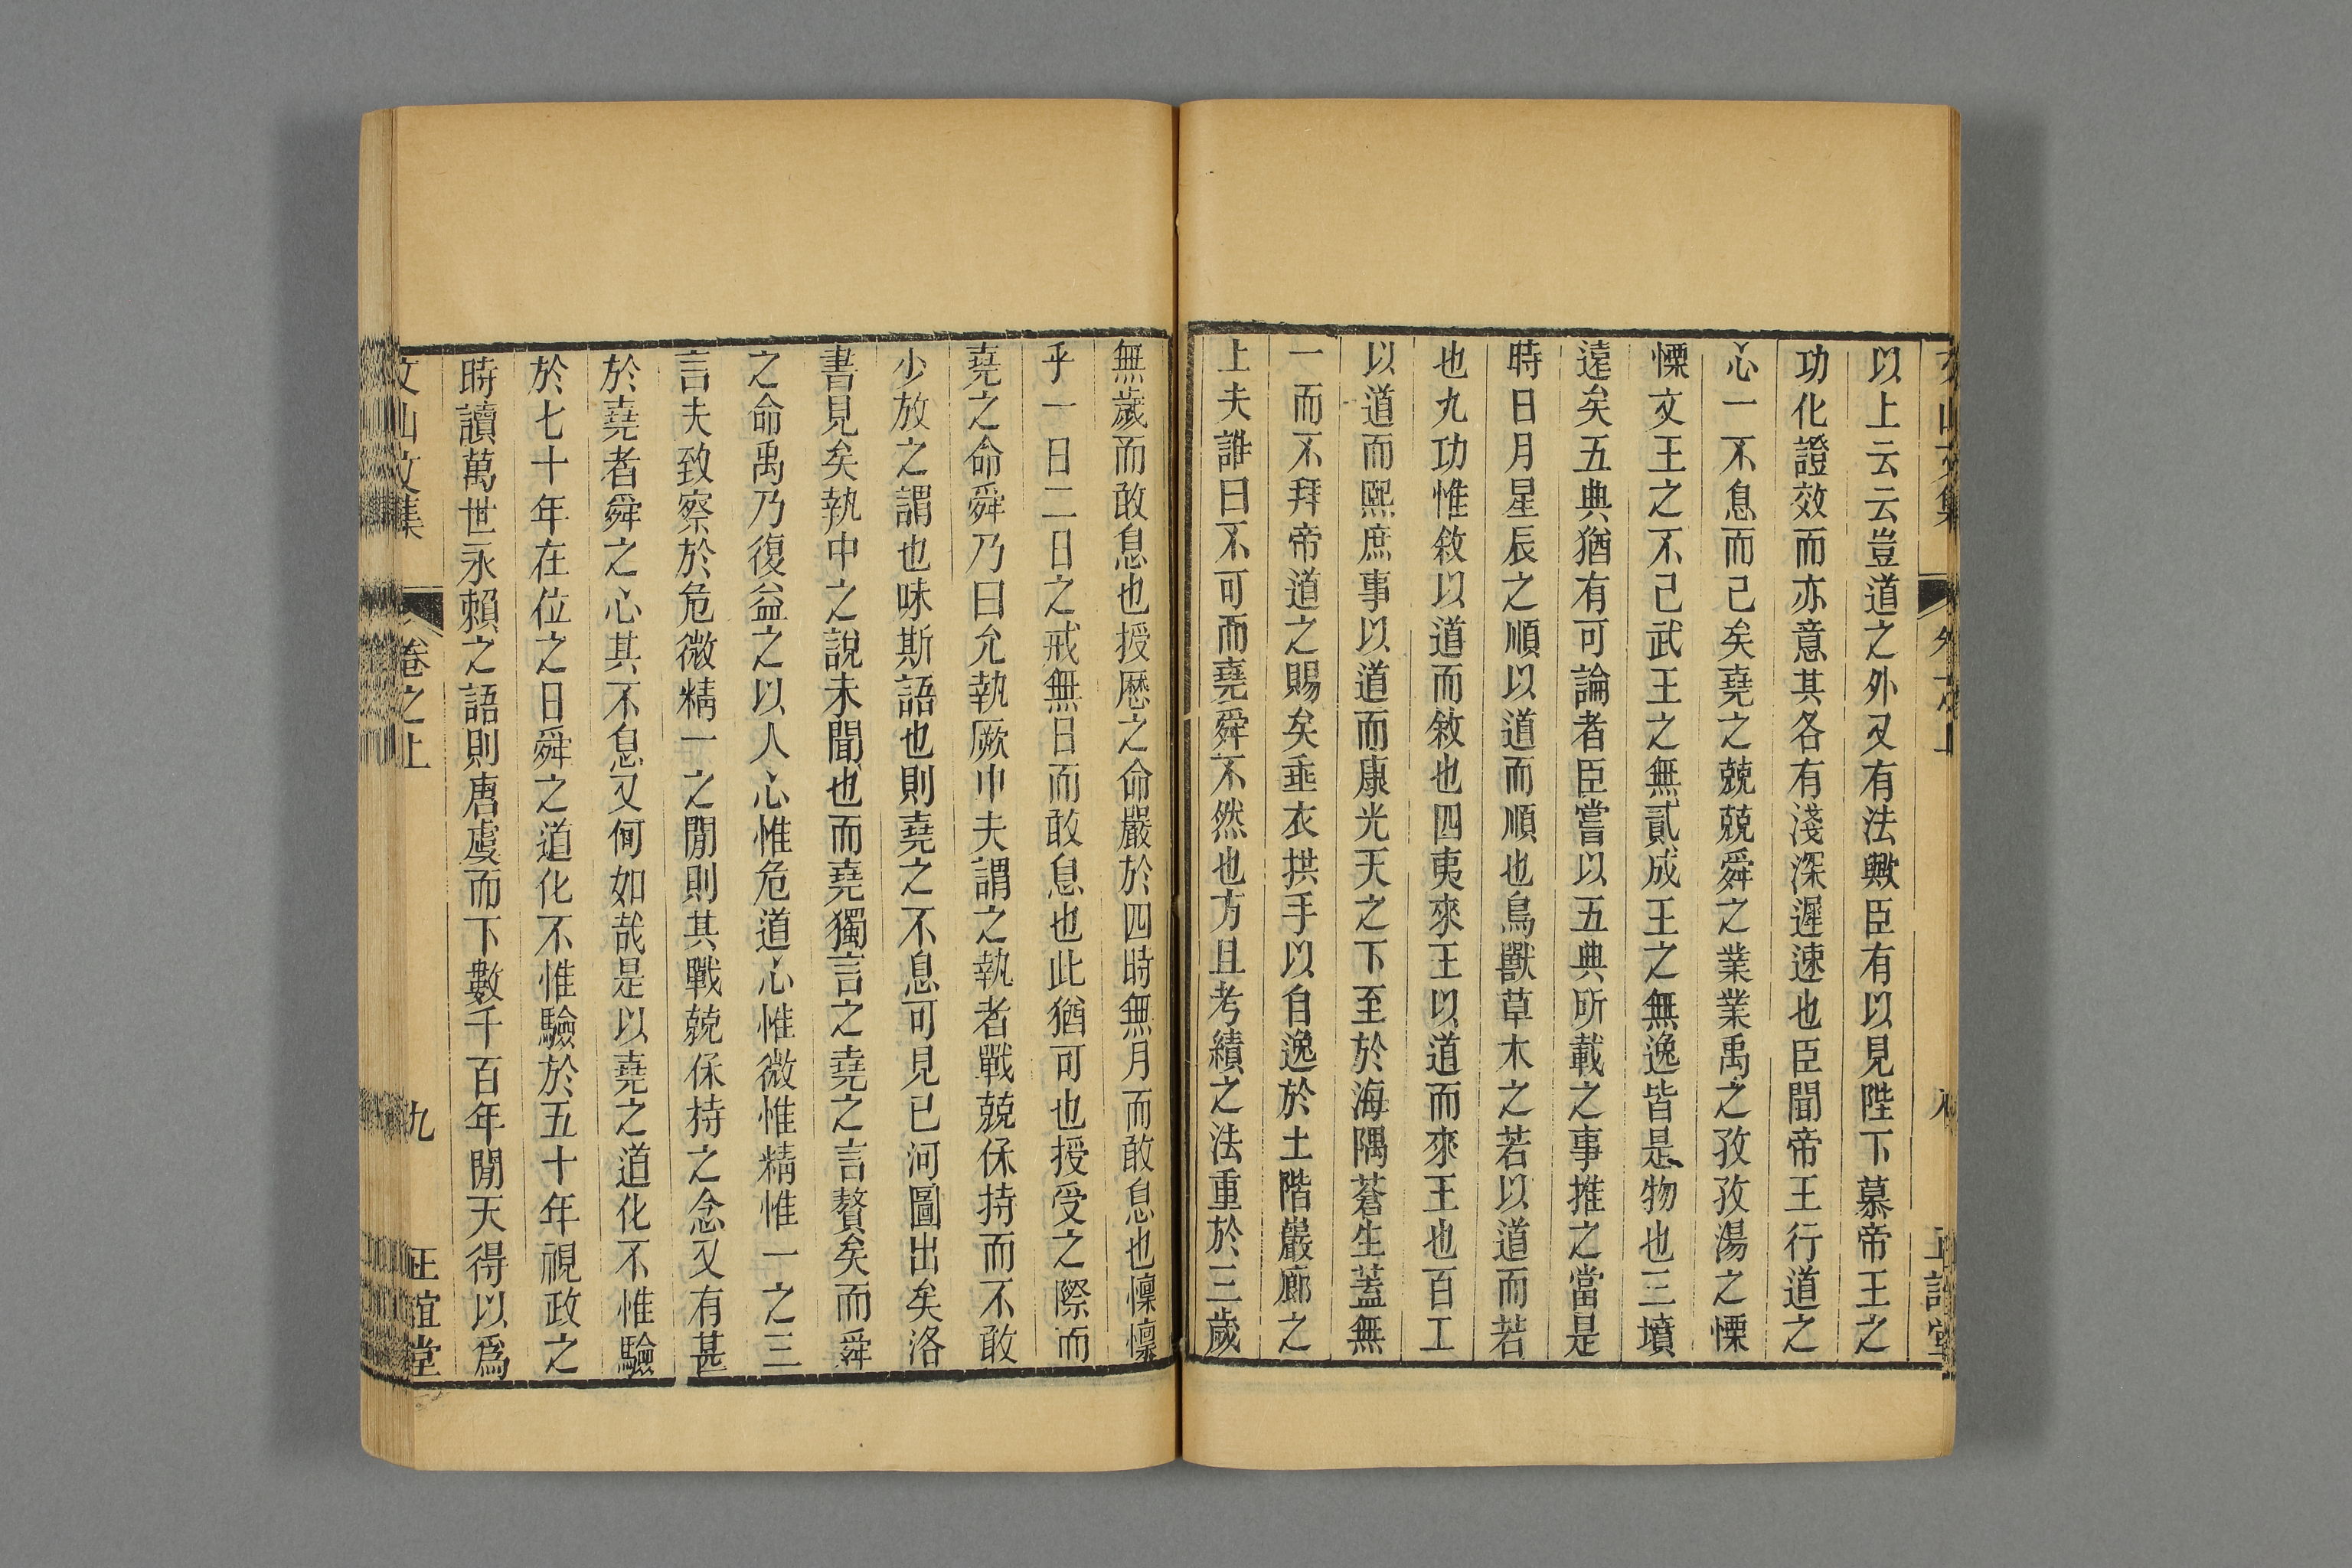 以上云云豈道之外又有法歟臣有以見陛下慕帝王之
功化證效而亦意其各有淺深遲速也臣聞帝王行道之
心一不息而已矣堯之兢兢舜之業業禹之孜孜湯之慄
慄文王之不已武王之無貳成王之無逸皆是物也三墳
遠矣五典猶有可論者臣嘗以五典所載之事推之當是
時日月星辰之順以道而順也鳥獸草木之若以道而若
也九功惟敘以道而敘也四夷來王以道而來王也百工
以道而熙庶事以道而康光天之下至於海隅蒼生蓋無
一而不拜帝道之賜矣垂衣拱手以自逸於土階巖廊之
上夫誰曰不可而堯舜不然也方且考績之法重於三歲
無歲而敢息也授曆之命嚴於四時無月而敢息也懍懍
乎一日二日之戒無日而敢息也此猶可也授受之際而
堯之命舜乃曰允執厥中夫謂之執者戰兢保持而不敢
少放之謂也味斯語也則堯之不息可見已河圖出矣洛
書見矣執中之說未聞也而堯獨言之堯之言贅矣而舜
之命禹乃復益之以人心惟危道心惟微惟精惟一之三
言夫致察於危微精一之間則其戰兢保持之念又有甚
於堯者舜之心其不息又何如哉是以堯之道化不惟驗
於七十年在位之日舜之道化不惟驗於五十年視政之
時讀萬世永賴之語則唐虞而下數千百年間天得以爲
文山文集 卷之上 九 正誼堂